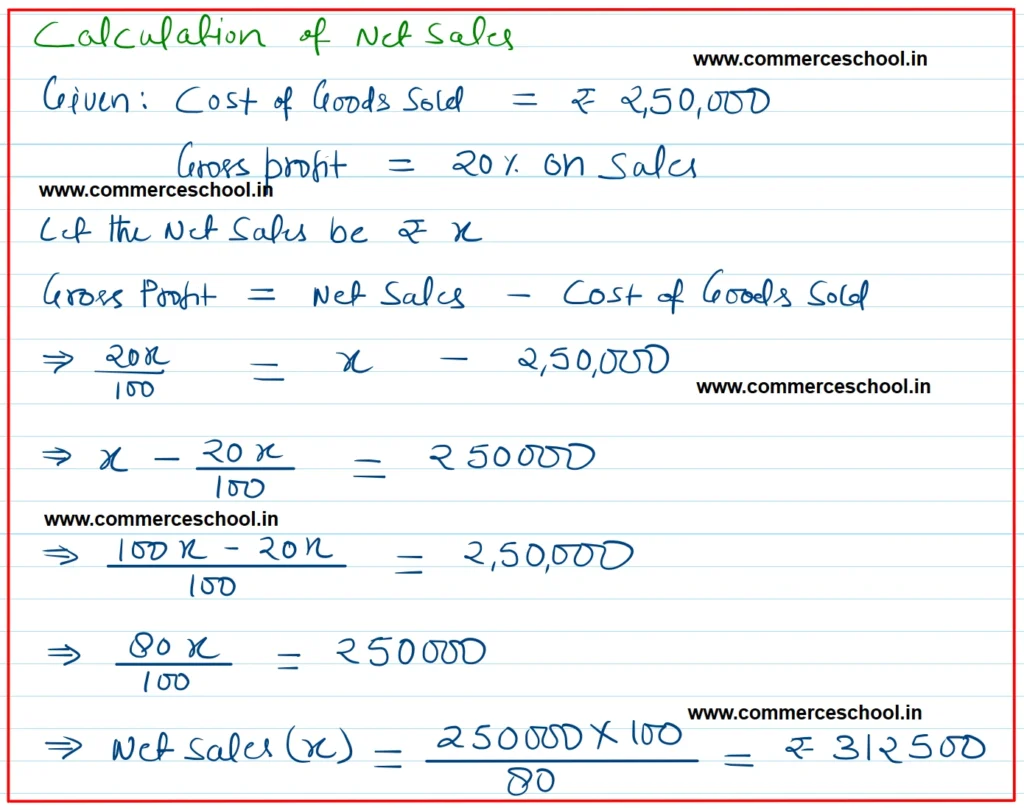 Calculation of Net Sales
www.commerceschool.in
Given: Cost of Goods Sold = ₹ 2,50,000
Gross profit = 20% on Sales
www.commerceschool.in
Let the Net Sales be ₹ x
Gross Profit = Net Sales - Cost of Goods Sold
⇒ 20x/100 = x - 2,50,000
www.commerceschool.in
⇒ x - 20x/100 = 250000
www.commerceschool.in
⇒ 100x - 20x/100 = 2,50,000
⇒ 80x/100 = 250000
www.commerceschool.in
⇒ Net Sales (x) = 250000 X 100/80 = ₹ 312500